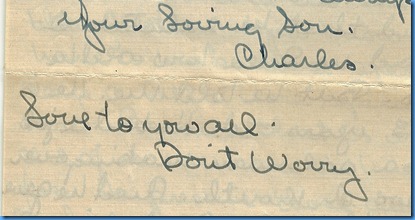 Your Loving Son.
Charles.
Love to you all.
Don't Worry.